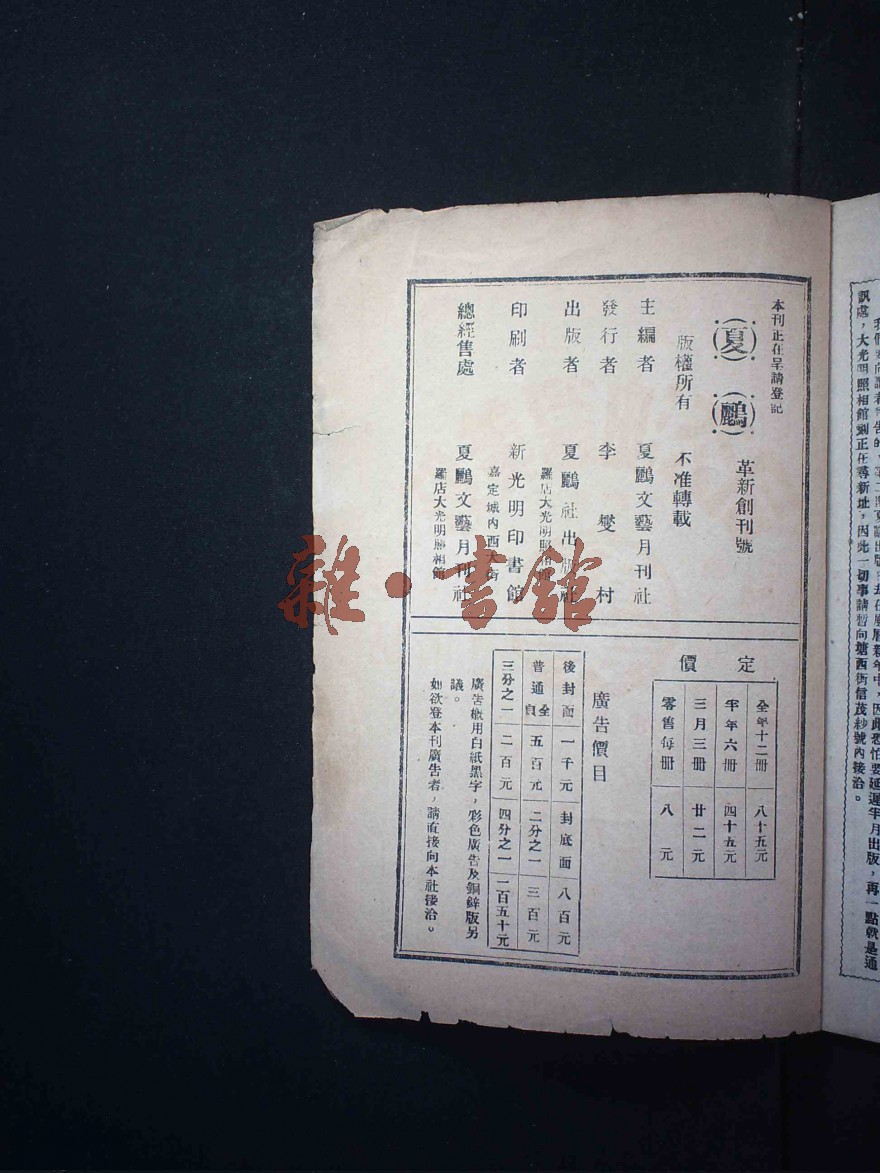 本刊正在呈請登記
夏鸝
革新創刊號
版權所有 不准轉載
主編者 夏鸝文藝月刊社
發行者 李燮村
出版者 夏鸝社出版社
羅店大光明照相館
印刷者 新光明印書館
嘉定城內西大街
總經售處 夏鸝文藝月刊社
羅店大光明照相館
定價
全年十二冊 八十五元
半年六冊 四十五元
三月三冊 廿二元
零售每冊 八元
廣告價目
後封面 一千元 封底面 八百元
普通全頁 五百元 二分之一 三百元
三分之一 二百元 四分之一 一百五十元
廣告概用白紙黑字，彩色廣告及銅鋅版另
議。
如欲登本刊廣告者，請直接向本社接洽。
出版，再一點就是通
訊處，大光明照相館刻正在尋新址，因此一切事請暫向塘西街信茂紗號內接洽。
雜·書館